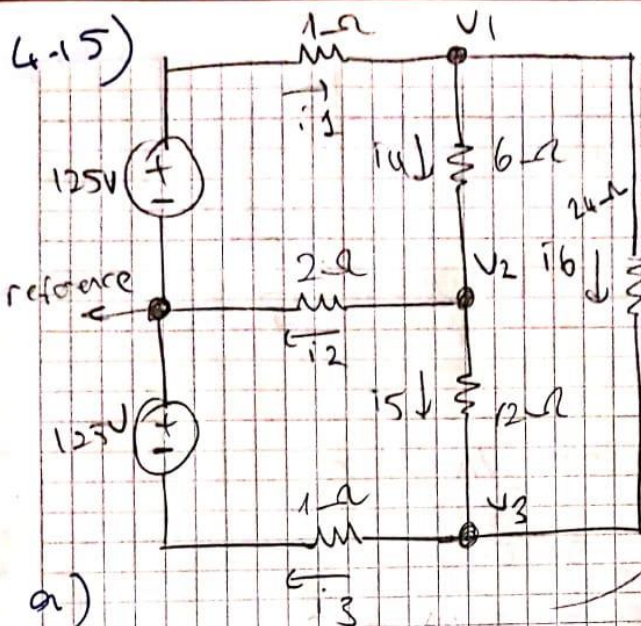 4.15)
1Ω
V1
i1
125V
+
-
i4
6Ω
24Ω
reference
2Ω
V2
i6
i2
i5
12Ω
125V
+
-
1Ω
V3
i3
a)